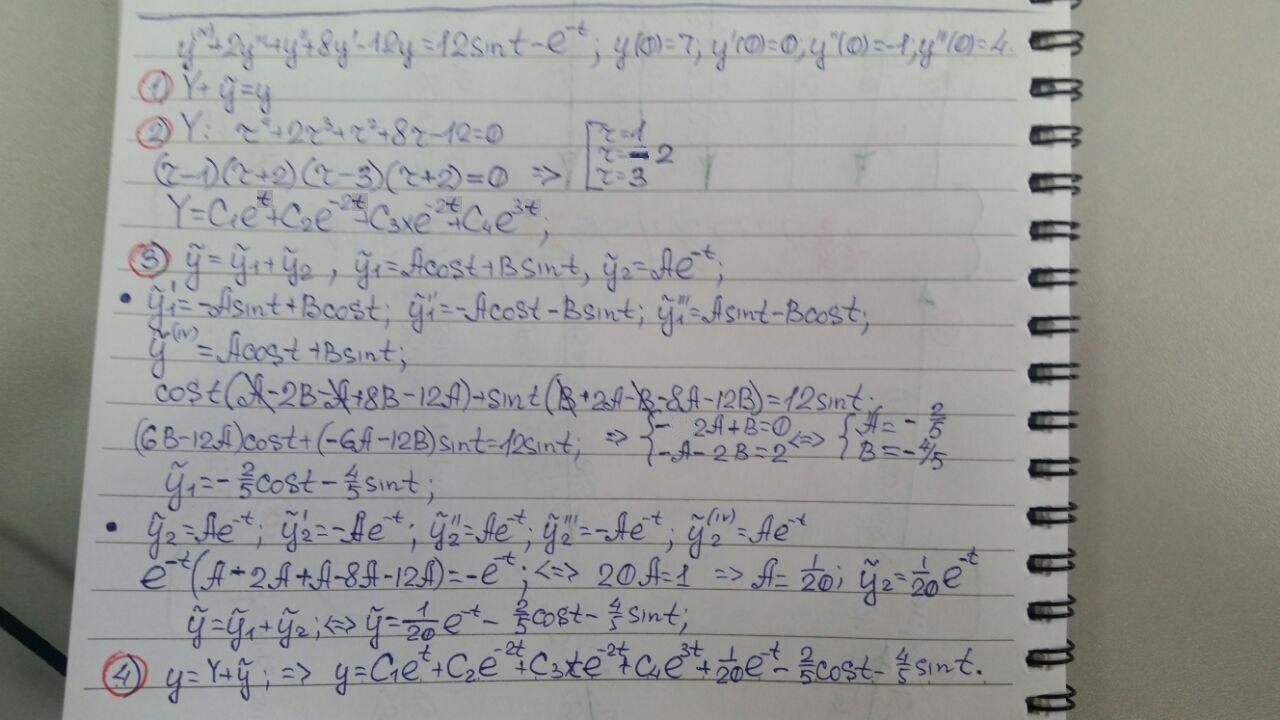 y⁽ⁱᵛ⁾+2y'''+y''+8y'-12y=12sint-e⁻ᵗ; y(0)=7; y'(0)=0; y''(0)=-1; y'''(0)=4.
① Y+ỹ=y
② Y: r⁴+2r³+r²+8r-12=0 [r=1
(r-1)(r+2)(r-3)(r+2)=0 => r=-2 r=3
Y=C₁eᵗ+C₂e⁻²ᵗ+C₃xe⁻²ᵗ+C₄e³ᵗ;
③ ỹ=ỹ₁+ỹ₂, ỹ₁=Acost+Bsint, ỹ₂=Ae⁻ᵗ;
• ỹ₁'=-Asint+Bcost; ỹ₁''=-Acost-Bsint; ỹ₁'''=Asint-Bcost;
ỹ⁽ⁱᵛ⁾=Acost+Bsint;
cost(A-2B-A+8B-12A)+sint(B+2A-B-8A-12B)=12sint;
(6B-12A)cost+(-6A-12B)sint=12sint; => {-2A+B=0 -A-2B=2 <=> {A=-2/5 B=-4/5
ỹ₁=-2/5cost-4/5sint;
• ỹ₂=Ae⁻ᵗ; ỹ₂'=-Ae⁻ᵗ; ỹ₂''=Ae⁻ᵗ; ỹ₂'''=-Ae⁻ᵗ; ỹ₂⁽ⁱᵛ⁾=Ae⁻ᵗ
e⁻ᵗ(A-2A+A-8A-12A)=-e⁻ᵗ; <=> 20A=1 => A=1/20; ỹ₂=1/20e⁻ᵗ
ỹ=ỹ₁+ỹ₂; <=> ỹ=1/20e⁻ᵗ-2/5cost-4/5sint;
④ y=Y+ỹ; => y=C₁eᵗ+C₂e⁻²ᵗ+C₃te⁻²ᵗ+C₄e³ᵗ+1/20e⁻ᵗ-2/5cost-4/5sint.